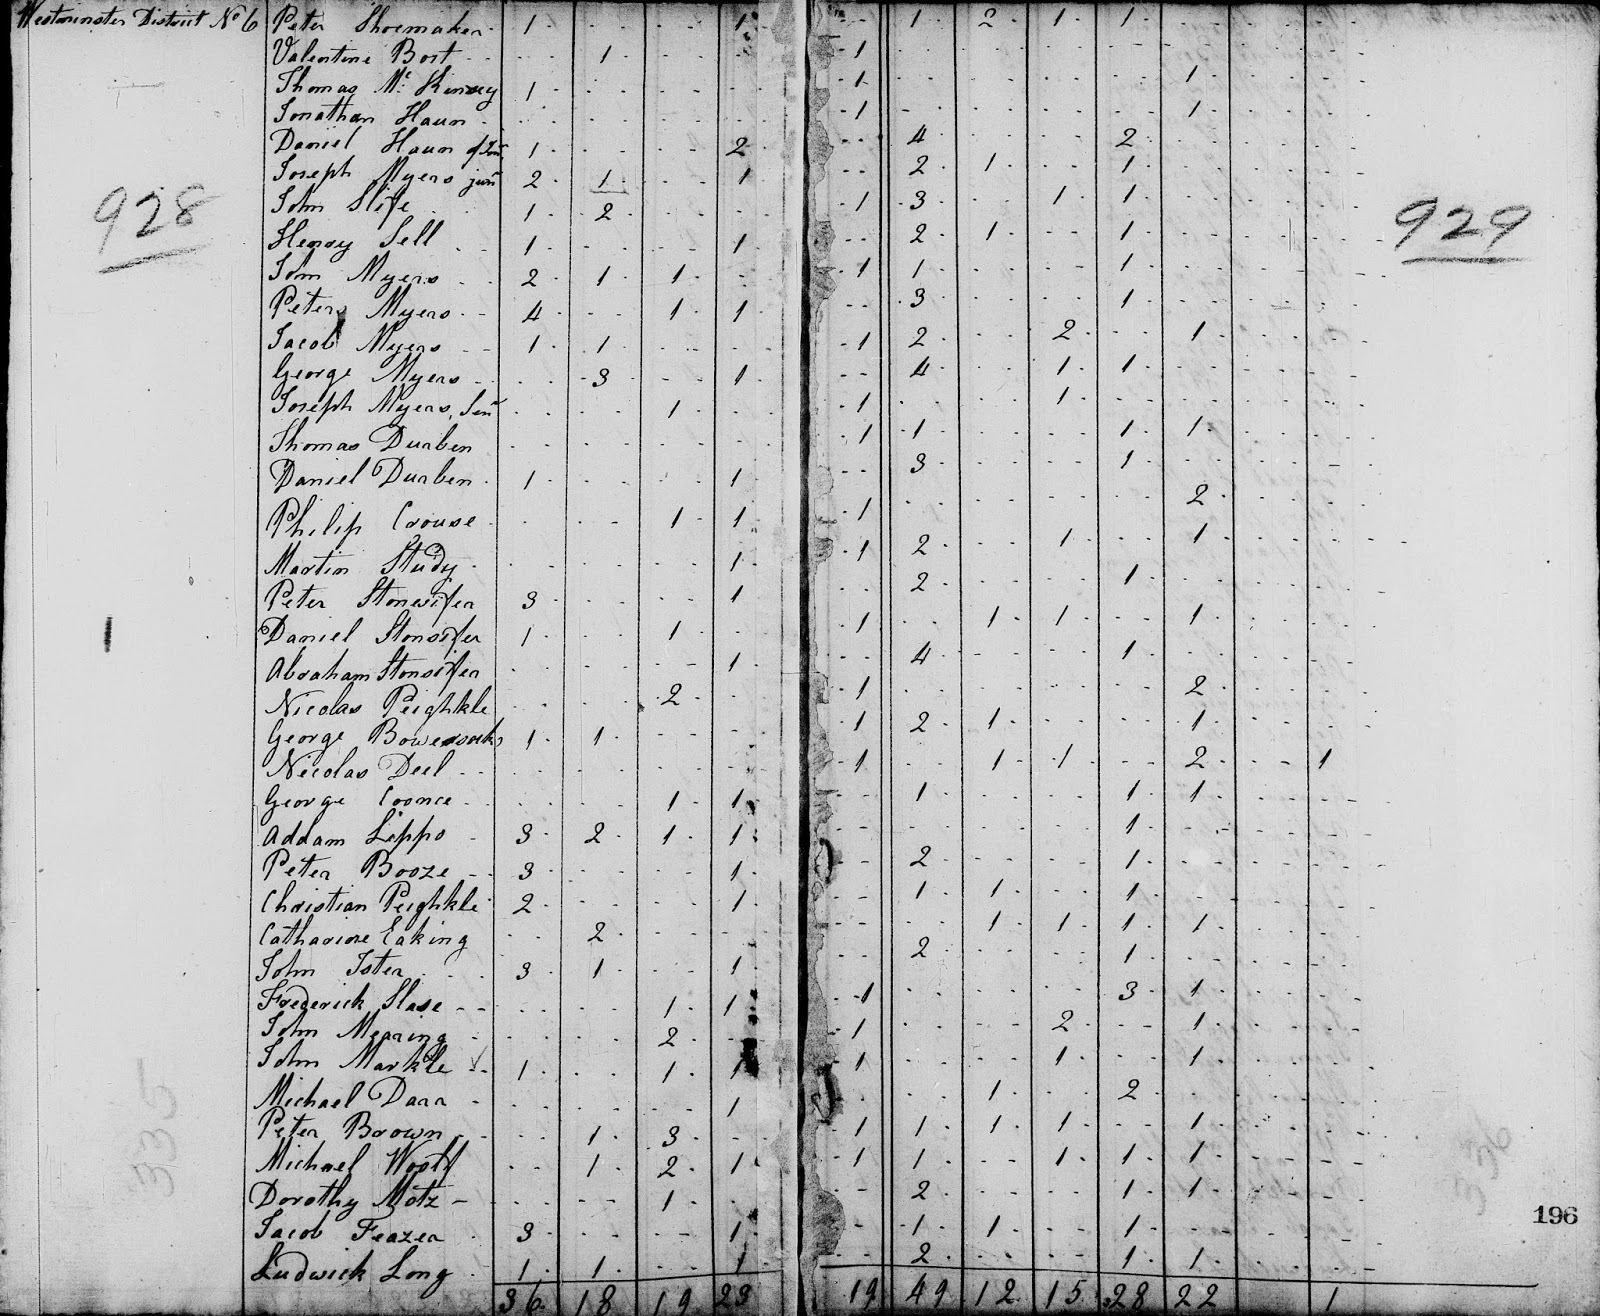 Westminster District No 6 Peter Shoemaker 1 . . 1 . 1 2 1 1 . . .
Valentine Bost . 1 . . 1 . . . . . . .
Thomas Mc Kinsey 1 . . . 1 . . . . 1 . .
Jonathan Haun . . . . 1 . . . . 1 . .
Daniel Haun of Jno 1 . . 2 . 4 . . 2 . . .
Joseph Myers junr 2 1 . 1 . 2 1 . 1 . . .
John Slife 1 2 . . 1 3 . 1 1 . . .
Henry Sell 1 . . 1 . 2 1 . 1 . . .
John Myers 2 1 1 . 1 1 . . 1 . . .
Peter Myers 4 . 1 1 . 3 . . 1 . . .
Jacob Myers 1 1 . . 1 2 . 2 . 1 . .
George Myers . 3 . 1 . 4 . 1 1 . . .
Joseph Myers, Senr . . 1 . 1 . . 1 . . . .
Thomas Durben . . . . 1 1 . . 1 1 . .
Daniel Durben 1 . . 1 . 3 . . 1 . . .
Philip Crouse . . 1 1 1 . . . . 2 . .
Martin Study . . . 1 1 2 . 1 . 1 . .
Peter Stonesifer 3 . . 1 . 2 . . 1 . . .
Daniel Stonsifer 1 . 1 . 1 . 1 1 . 1 . .
Abraham Stonsifer . . . 1 . 4 . . 1 . . .
Nicolas Peighkle . . 2 . 1 . . . . 2 . .
George Bowersocks 1 1 . . 1 2 1 . . 1 . .
Nicolas Deel . . . . 1 . 1 1 . 2 . 1
George Coonce . . 1 1 . 1 . . 1 1 . .
Addam Leppo 3 2 1 1 . . . . 1 . . .
Peter Booze 3 . . 1 . 2 . . 1 . . .
Christian Peighkle 2 . . 1 . 1 1 . 1 . . .
Catharine Eaking . 2 . . . . 1 1 1 1 . .
John Ister 3 1 . 1 . 2 . . 1 . . .
Frederick Slase . . 1 1 1 . . . 3 1 . .
John Mearing . . 2 . 1 . . 2 . 1 . .
John Markle 1 . 1 1 1 . . 1 . 1 . .
Michael Darr . . . 1 . . 1 . 2 . . .
Peter Brown . 1 3 . 1 1 1 1 . 1 . .
Michael Woolf . 1 2 1 1 1 . 1 1 1 . .
Dorothy Motz . . 1 . . 2 . . 1 1 . .
Jacob Frazer 3 . . 1 . 1 1 . 1 . . .
Ludwick Long 1 1 . 1 . 2 . . 1 1 . .
36 18 19 23 19 49 12 15 28 22 1
928
929
335
196